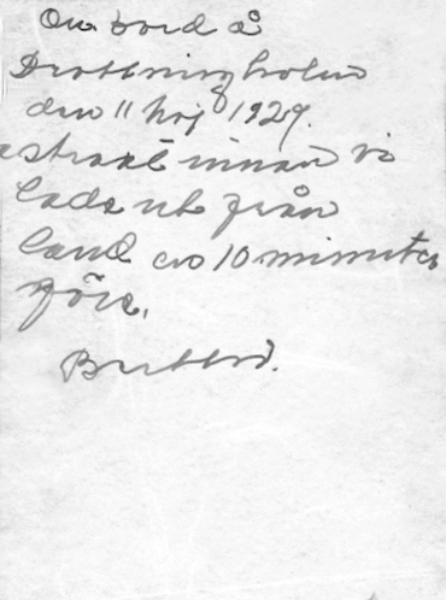 Om bord å
Drottningholm
den 11 Maj 1929.
strax innan vi
lade ut från
land co 10 minuter
före.